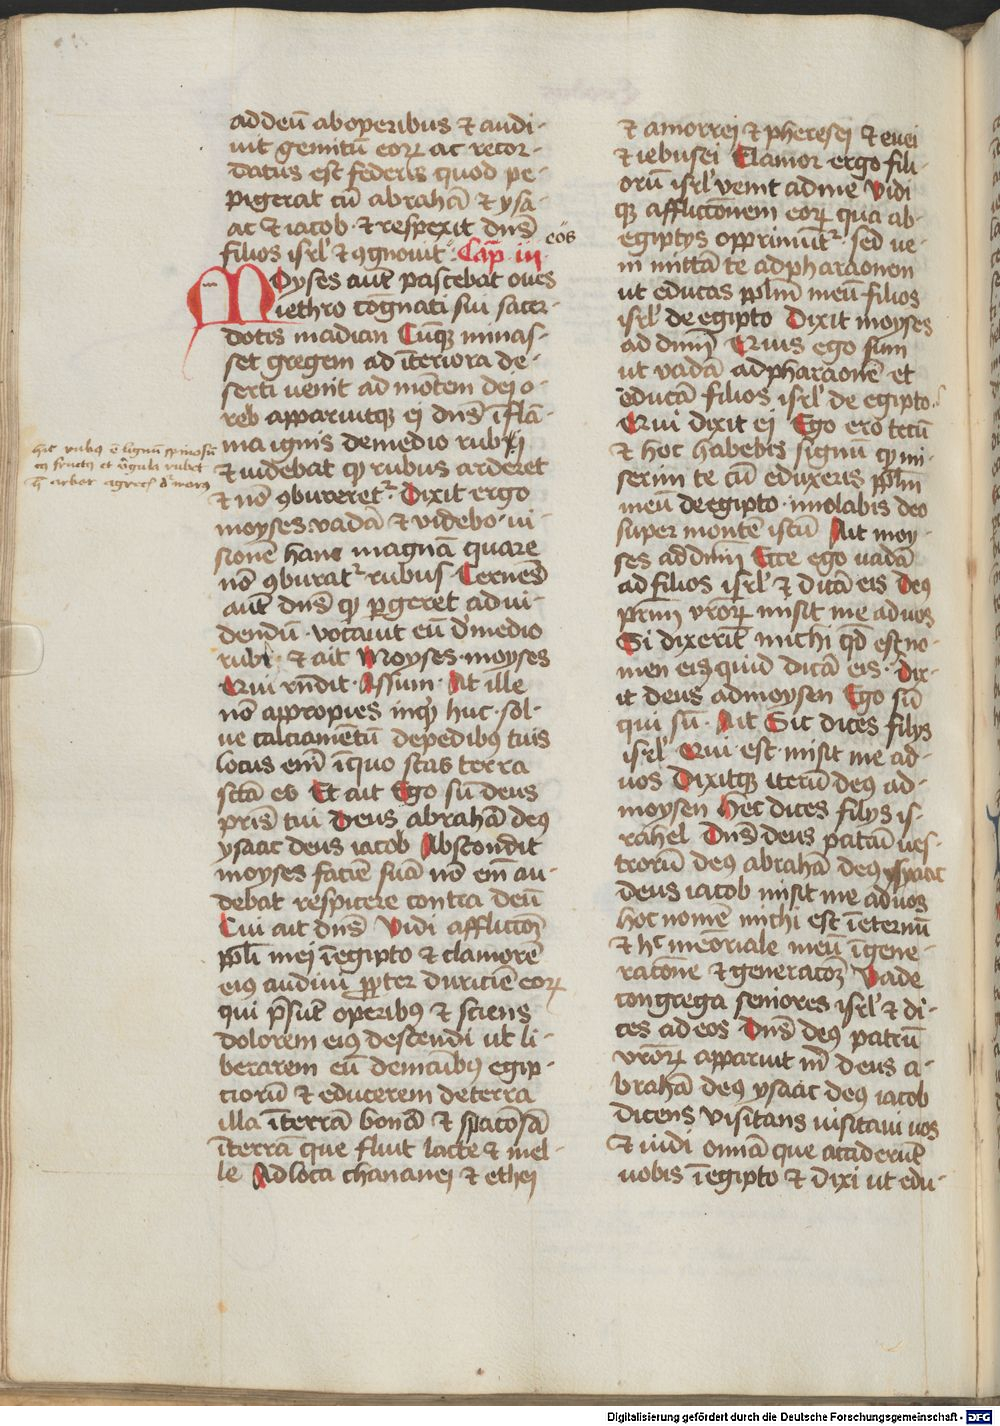 ad deū ab operibus ⁊ audi-
uit gemitū eoꝝ ac recor-
datus est federis quod pe-
pigerat cū abrahā ⁊ ysa-
ac ⁊ iacob · ⁊ respexit dn̄s
filios isrl' ⁊ ꝯgnouit Cap̄ iij
eos
Moyses aūt pascebat oues
iethro cognati sui sacer-
dotis madian Cūqꝫ minas-
set gregem ad īteriora de-
serti uenit ad mōtem dei o-
reb apparuitqꝫ ei dn̄s ī flā-
ma ignis de medio rubi
⁊ uidebat qꝫ rubus arderet
⁊ nō ꝯbureret᷑ Dixit ergo
moyses vadā ⁊ videbo ui-
sionē hanc magnā quare
nō ꝯburat᷑ rubus Cernēs
aūt dn̄s qꝫ ꝑgeret ad ui-
dendū · vocauit eū d' medio
rubi · ⁊ ait Moyses · moyses
Qui rn̄dit · Assum · At ille
nō appropies inqꝫ huc · sol-
ue calciamētū de pedibꝰ tuis
locus em̄ ī quo stas terra
sctā es Et ait Ego sū deus
pr̄is tui Deus abrahā deꝰ
ysaac deus iacob Abscondit
moyses faciē suā nō em̄ au-
debat respicere contra deū
Cui ait dn̄s Vidi afflictōꝫ
ppl̄i mei ī egipto ⁊ clamorē
eiꝰ audiui ꝓpter duriciē eoꝝ
qui p̄sūt operibꝰ ⁊ sciens
dolorem eiꝰ descendi ut li-
berarem eū de manibꝰ egip-
ciorū ⁊ educerem de terra
illa ī terrā bonā ⁊ spacōsā
ī terrā que fluit lacte ⁊ mel-
le Ad loca chananei ⁊ ethei
hic rubꝰ ē lignū spinosū
⁊ amorrei ⁊ pheresei ⁊ euei
⁊ iebusei Clamor ergo fili-
orū isrl' venit ad me Vidi
qꝫ afflictōnem eoꝝ qua ab
egiptijs opprimūt᷑ · sed ue-
ni mittā te ad pharaonem
ut educas ppl̄m meū filios
isrl' de egipto Dixit moyses
ad dnm̄ Quis ego sum
ut vadā ad pharaonē et
educā filios isrl' de egipto
Qui dixit ei Ego ero tecū
⁊ hoc habebis signū qꝫ mi-
serim te cū eduxeris ppl̄m
meū de egipto · īmolabis deo
super montē istū Ait moy-
ses ad dnm̄ Ecce ego vadā
ad filios isrl' ⁊ dicā eis Deꝰ
pr̄m vr̄oꝝ misit me ad uos
Si dixerīt michi qd̄ est no-
men eiꝰ quid dicā eis · Dix-
it deus ad moysen Ego sū
qui sū · Ait Sic dices filijs
isrl' Qui est misit me ad
uos Dixitqꝫ iterū deꝰ ad
moysen Hec dices filijs is-
rahel Dn̄s deus patrū ues-
trorū deꝰ abrahā deꝰ ysaac
deus iacob misit me ad uos
hoc nomē michi est ī eternū
⁊ hͨ memōriale meū ī gene-
racōne ⁊ generacōꝫ Vade
congrega seniores isrl' ⁊ di-
ces ad eos Dn̄s deꝰ patrū
vr̄oꝝ apparuit m̄ deus a-
brahā deꝰ ysaac deꝰ iacob
dicens visitans uisitaui uos
⁊ uidi omnia que acciderūt
uobis ī egipto ⁊ dixi ut edu-
Digitalisierung gefördert durch die Deutsche Forschungsgemeinschaft - DFG